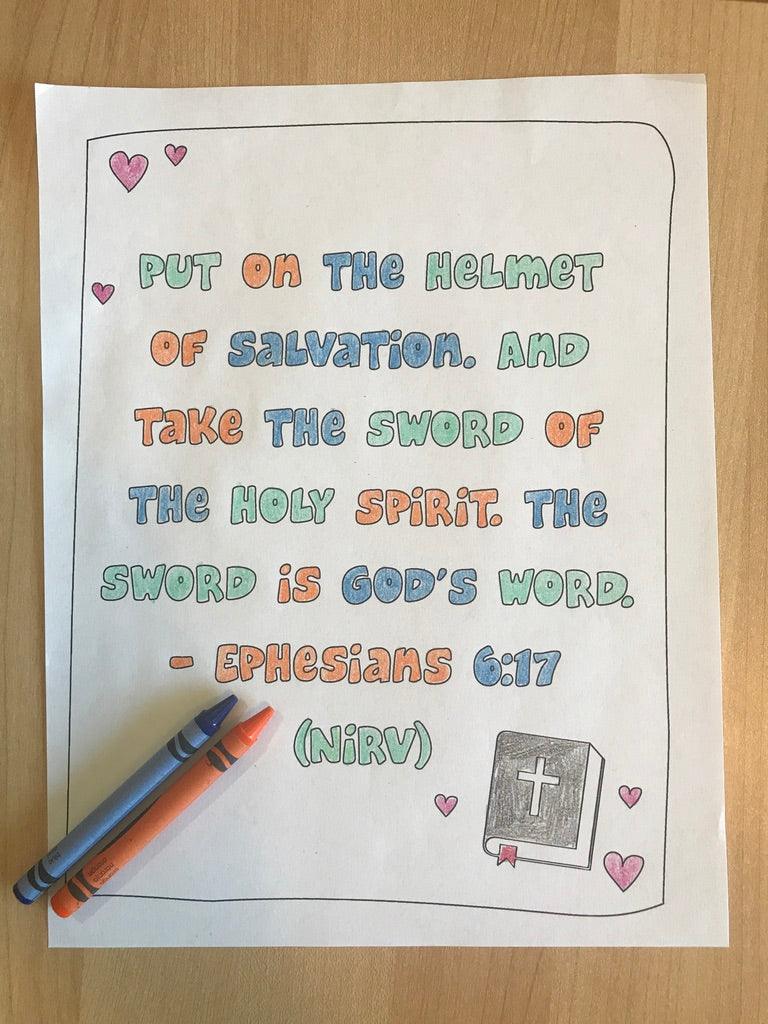 PUT ON THE HELMET
OF SALVATION. AND
TAKE THE SWORD OF
THE HOLY SPIRIT. THE
SWORD IS GOD'S WORD.
- EPHESIANS 6:17
(NIRV)
blue